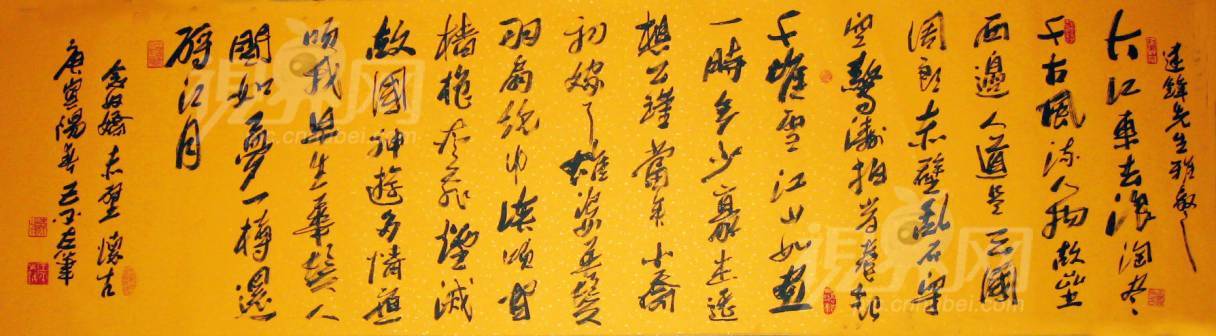 先生雅教之
大江東去浪淘尽
千古風流人物故壘
西邊人道是三國
周郎赤壁乱石穿
空驚濤拍岸卷起
千堆雪江山如画
一時多少豪杰遥
想公瑾當年小喬
初嫁了雄姿英發
羽扇纶巾談
檣櫓灰飛煙滅
故國神遊多情應
我早生華髮人
間如夢一樽還
酹江月
念奴嬌赤壁懷古
庚寅陽春左筆
視界网